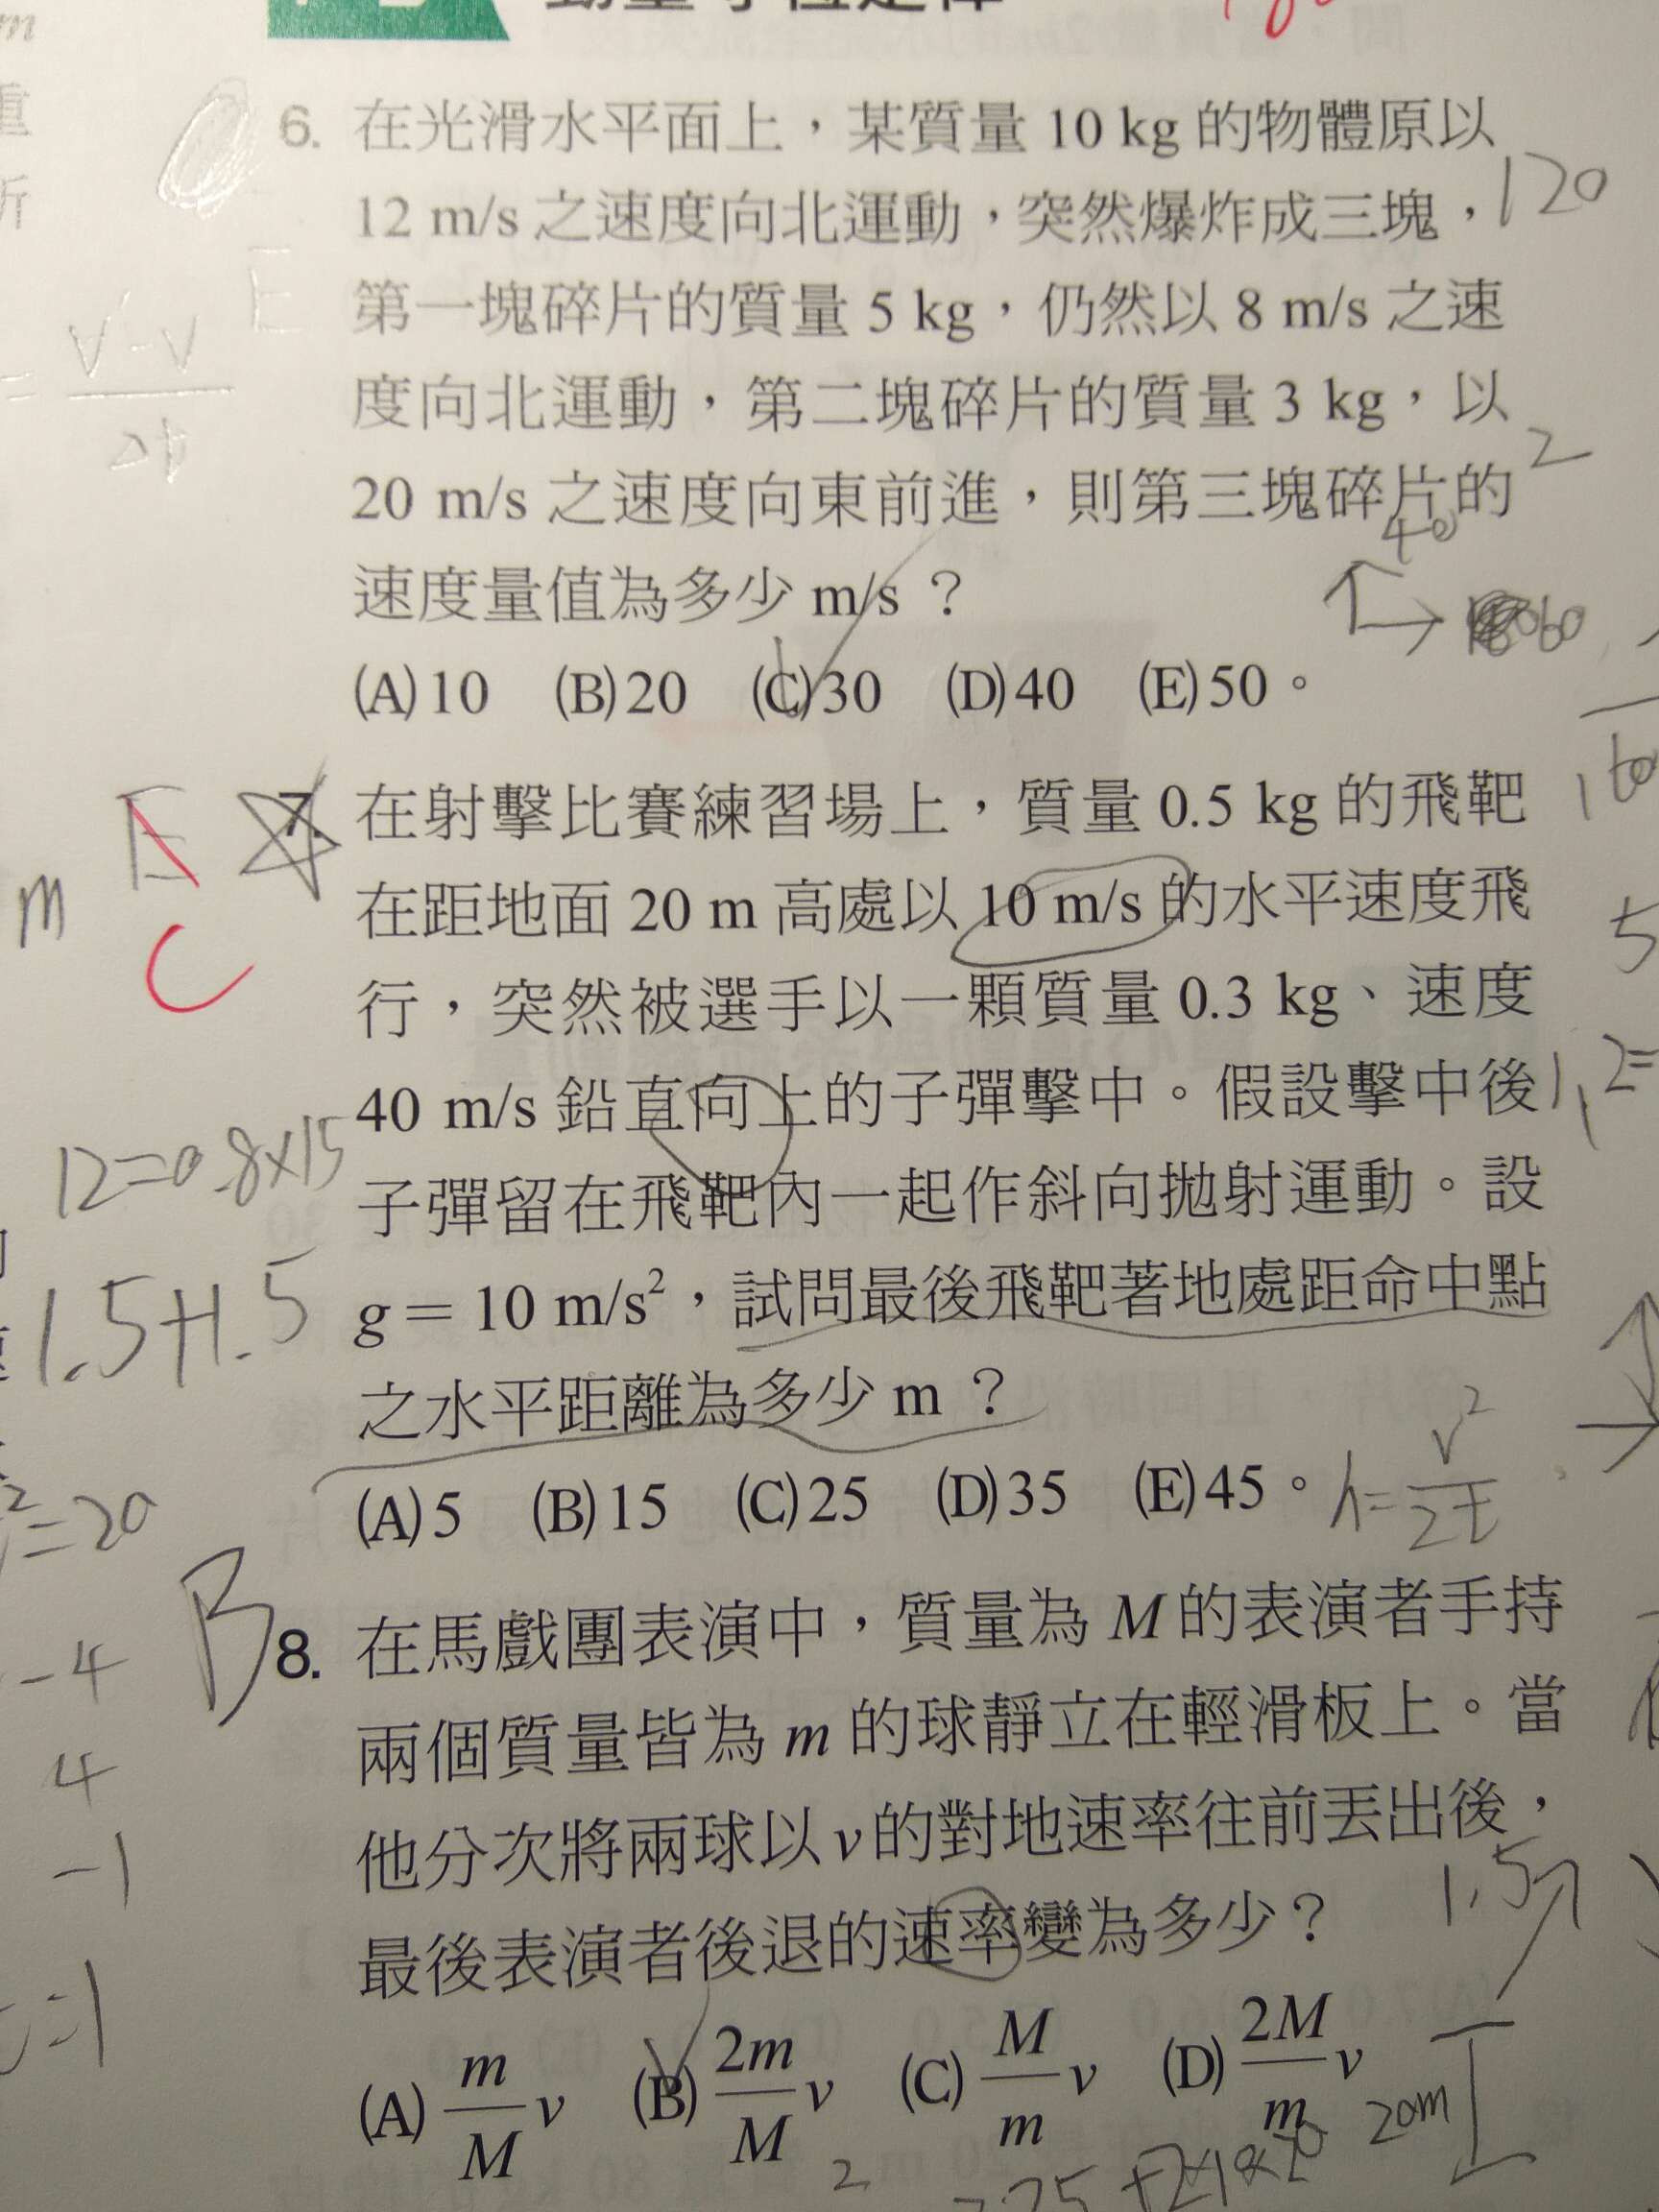 6. 在光滑水平面上，某質量 10 kg 的物體原以
12 m/s 之速度向北運動，突然爆炸成三塊，
120
第一塊碎片的質量 5 kg，仍然以 8 m/s 之速
E
度向北運動，第二塊碎片的質量 3 kg，以
2
20 m/s 之速度向東前進，則第三塊碎片的
40
速度量值為多少 m/s？
60
(A)10 (B)20 (C)30 (D)40 (E)50。
E
7. 在射擊比賽練習場上，質量 0.5 kg 的飛靶
m
在距地面 20 m 高處以 10 m/s 的水平速度飛
5
C
行，突然被選手以一顆質量 0.3 kg、速度
40 m/s 鉛直向上的子彈擊中。假設擊中後
1.2=
12=0.8×15
子彈留在飛靶內一起作斜向拋射運動。設
1.5+1.5
g = 10 m/s²，試問最後飛靶著地處距命中點
之水平距離為多少 m？
(A)5 (B)15 (C)25 (D)35 (E)45。
h=v²/2g
=20
B
8. 在馬戲團表演中，質量為 M 的表演者手持
-4
兩個質量皆為 m 的球靜立在輕滑板上。當
4
他分次將兩球以 v 的對地速率往前丟出後，
-1
1.5
最後表演者後退的速率變為多少？
=1
(A) m/M v (B) 2m/M v (C) M/m v (D) 2M/m v
20m